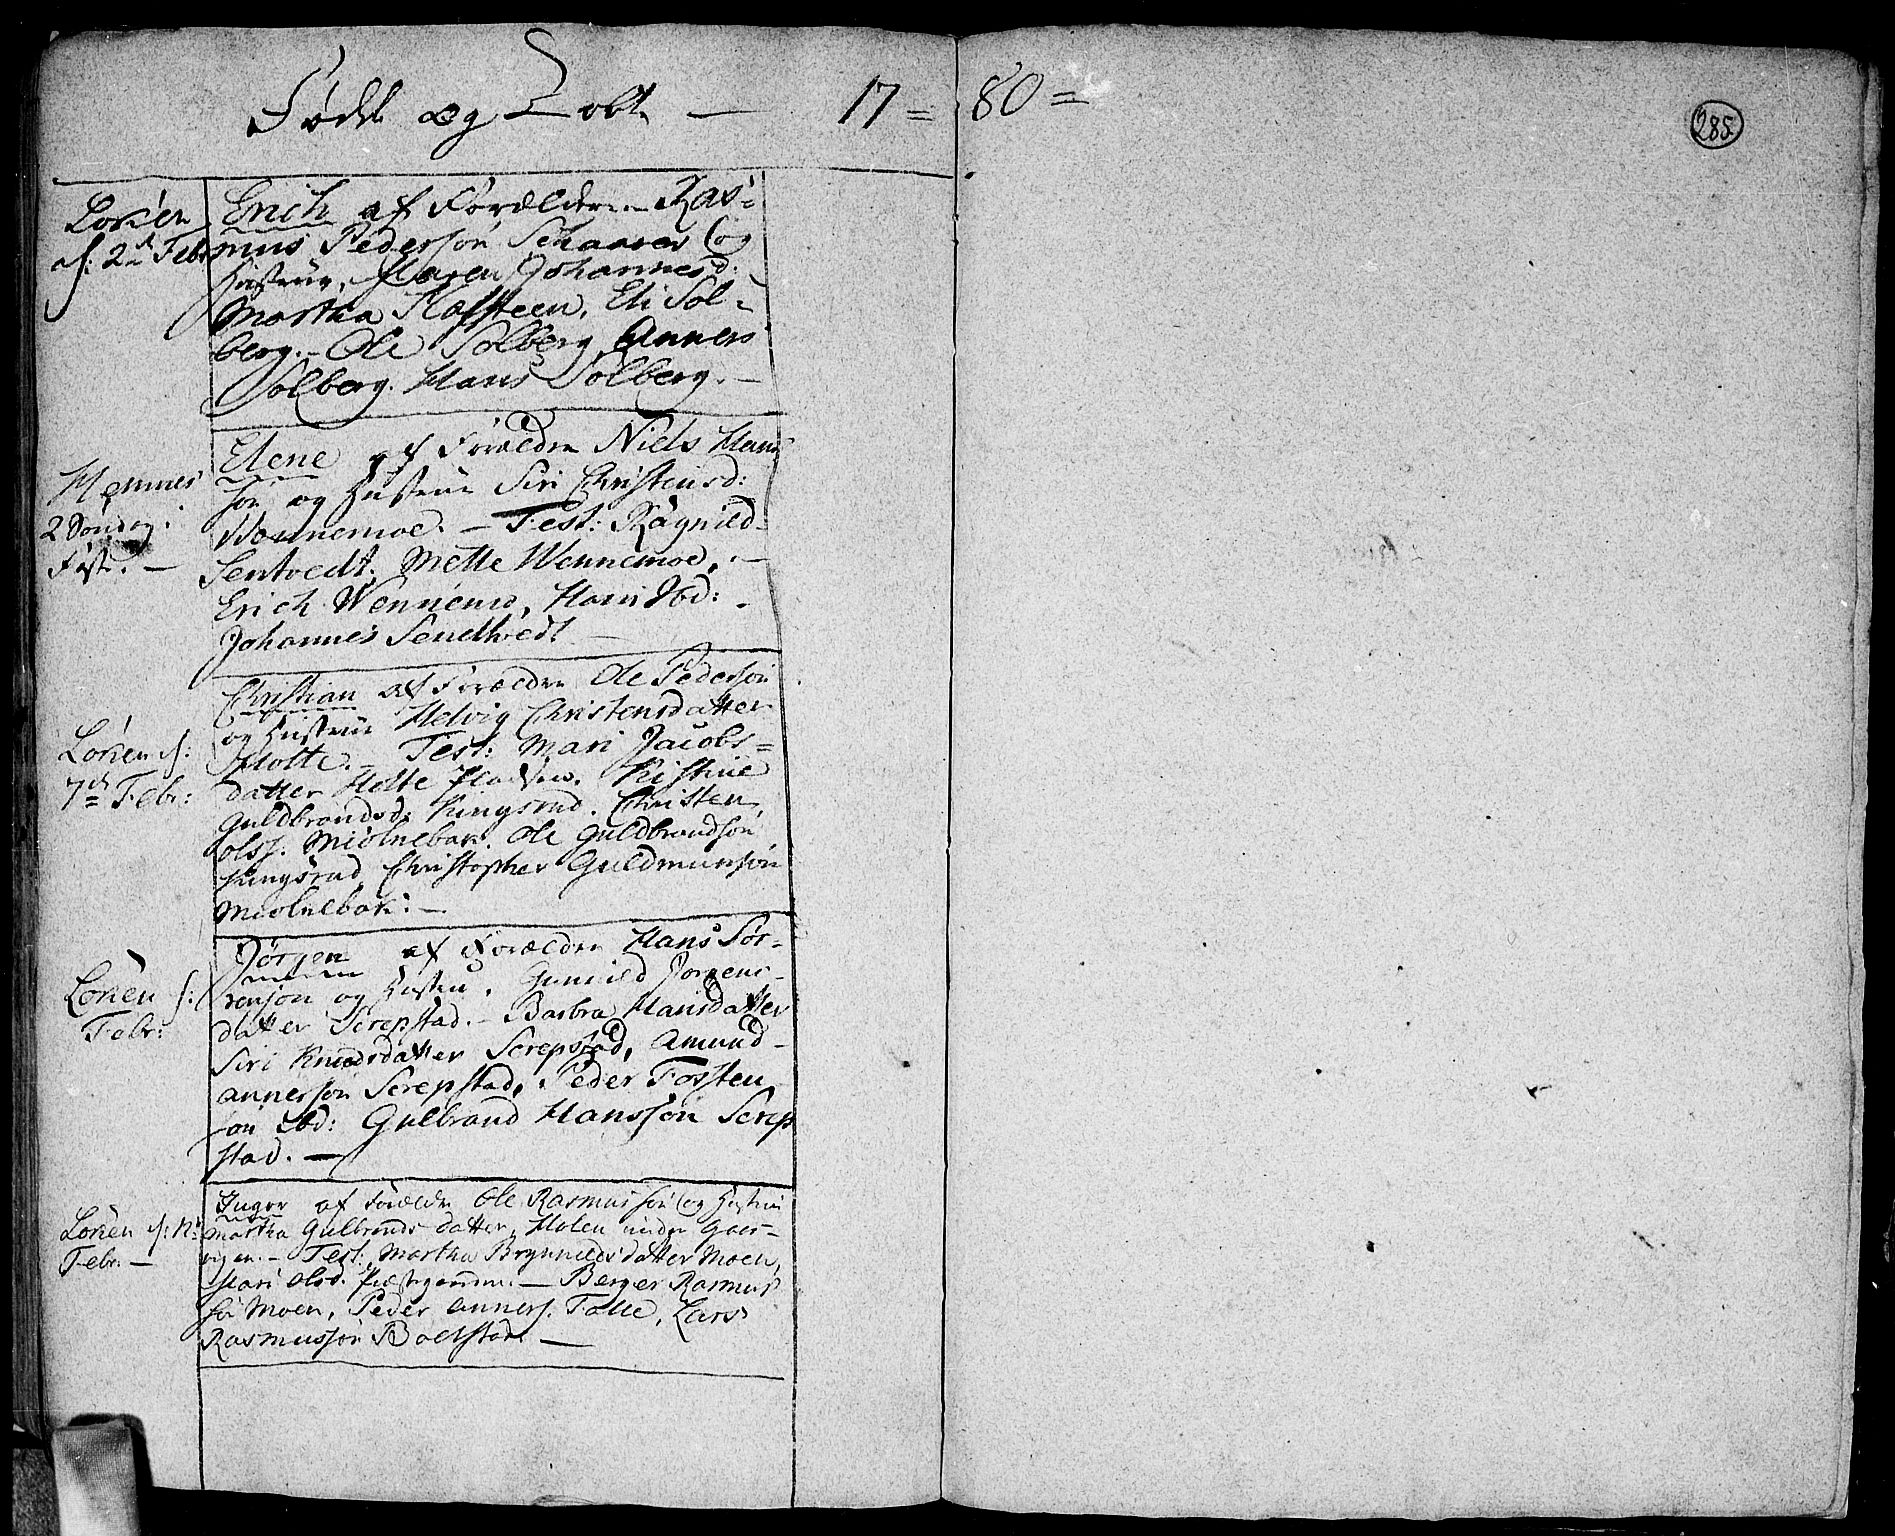 Födde og Döbte — 17 = 80 =
285.
Loxien
d: 2den Febr
Erich af Forældre Ras-
mus Pedersön Schaaren og
Hustrue, Maren Johannesd:
Martha Eli Sol-
berg. - Ole Solberg, Anners
Solberg. Hans Solberg. -
Hemnes
2 Söndag i
Faste. -
Elene af Forældre Niels Hans
sön og Hustrue Siri Christensd:
Wennemoe. - Test: Ragnild
Sentvedt. Mette Wennemoe, -
Erich Wennemo, Hans Ibd:
Johannes Sendtvedt -
Löxien d:
7de Febr:
Christian af Forældre Ole Pedersön
og Hustrue Helvig Christensdatter
Holte. - Test: Mari Jacobs=
datter Holte Kistine
Guldbrandsd: Kingsrud. Christen
Olss. Miölnebak. Ole Guldbrandsön
Kingsrud Christopher Guldmunsön
Miölnebak: -
Löxien d:
Febr:
Jörgen af Forældre Hans Sör-
rensön og Hustru, Gunild Jörgens-
datter Screpstad. - Barbra Hansdatter
Siri Knudsdatter Screpstad, Amund
Annersön Screpstad, Peder Tossten
sön Ibd: Gulbrand Hanssön Screp
stad. -
Löxien d:
Febr. -
Inger af Forældre Ole Rasmussön og Hustrue
Martha Gulbrandsdatter, Holen under Gaas-
vigen. - Test: Martha Brynnildsdatter Moen,
Mari Olsd. Præstegarden. - Berger Rasmus
sön Moen, Peder Anners. Falle, Lars
Rasmussön Bolstad. -